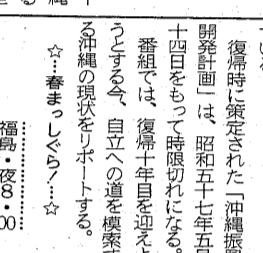 いる。
復帰時に策定された「沖縄振興
開発計画」は、昭和五十七年五月
十四日をもって時限切れになる。
番組では、復帰十年目を迎えと
うとする今、自立への道を模索す
る沖縄の現状をリポートする。
☆…春まっしぐら!…☆
福島・夜8・00